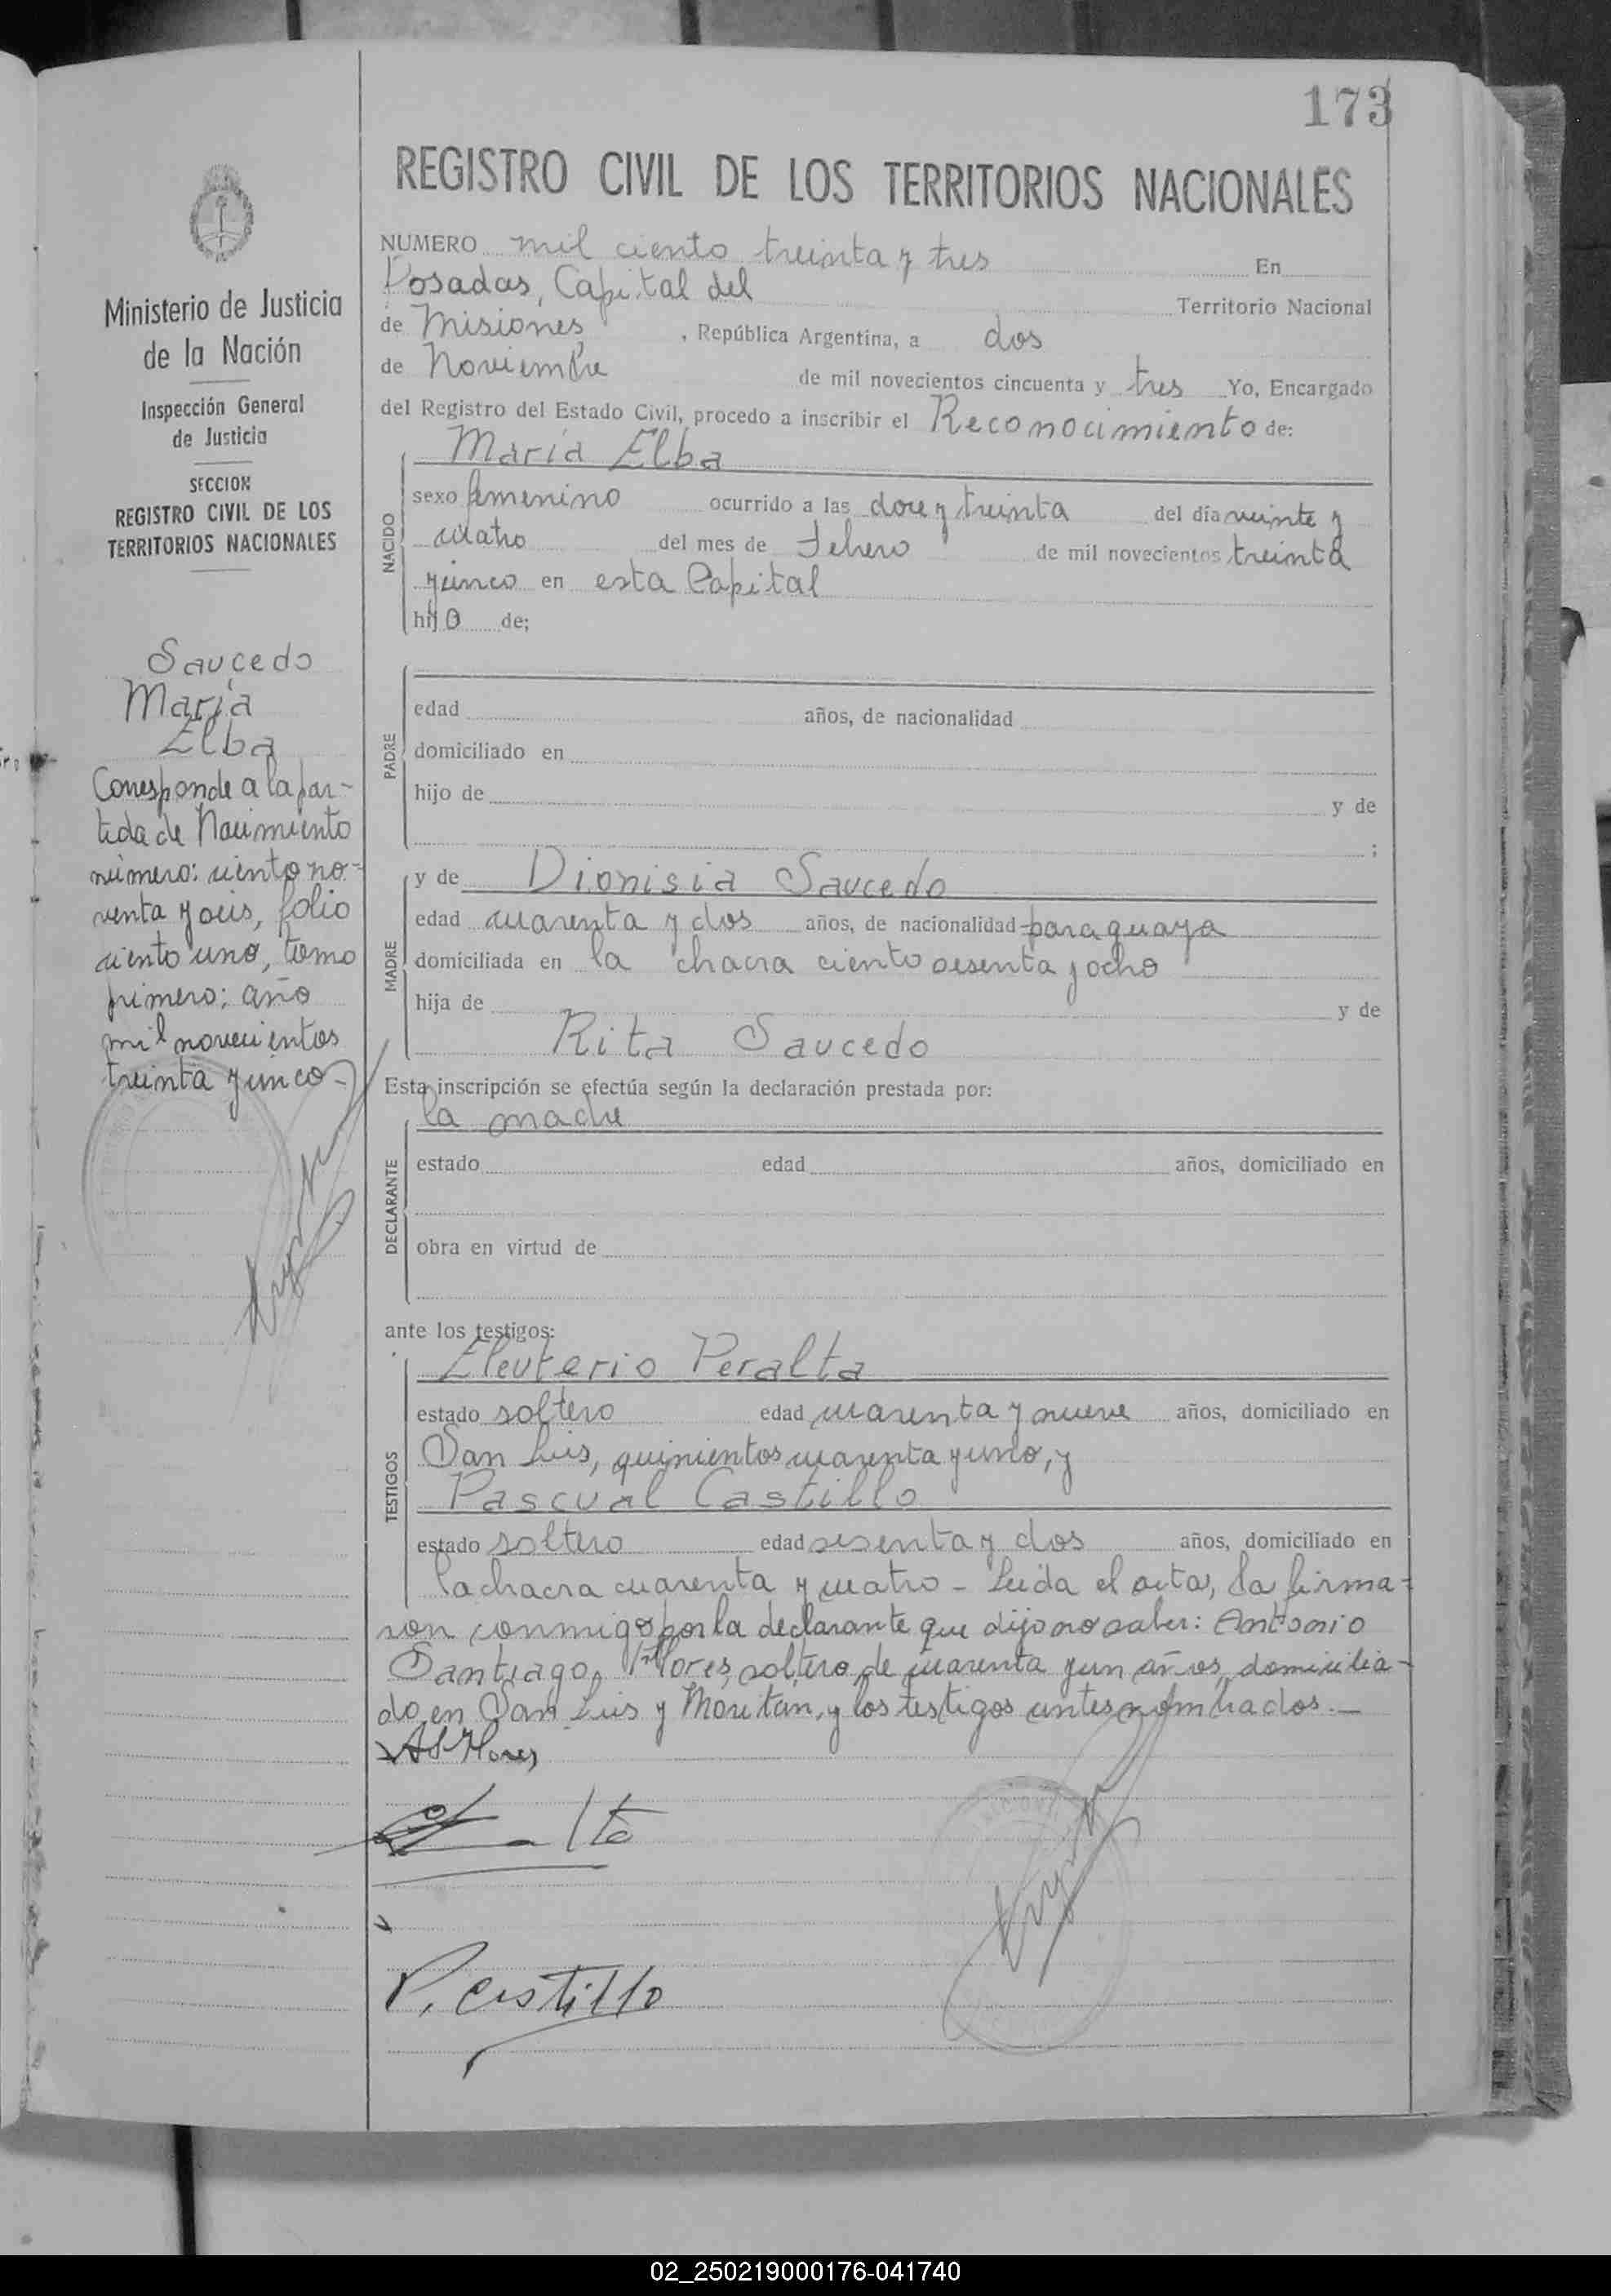 173
REGISTRO CIVIL DE LOS TERRITORIOS NACIONALES
NUMERO mil ciento treinta y tres En
Posadas, Capital del Territorio Nacional
de Misiones, República Argentina, a dos
de Noviembre de mil novecientos cincuenta y tres Yo, Encargado
del Registro del Estado Civil, procedo a inscribir el Reconocimiento de:
NACIDO
María Elba
sexo femenino ocurrido a las doce y treinta del día veinte y
cuatro del mes de Febrero de mil novecientos treinta
y cinco en esta Capital
hijo de;
PADRE
edad años, de nacionalidad
domiciliado en
hijo de y de
;
MADRE
y de Dionisia Saucedo
edad cuarenta y dos años, de nacionalidad paraguaya
domiciliada en la chacra ciento sesenta y ocho
hija de y de
Rita Saucedo
Esta inscripción se efectúa según la declaración prestada por:
DECLARANTE
la madre
estado edad años, domiciliado en
obra en virtud de
ante los testigos:
TESTIGOS
Eleuterio Peralta
estado soltero edad cuarenta y nueve años, domiciliado en
San Luis, quinientos cuarenta y uno, y
Pascual Castillo
estado soltero edad sesenta y dos años, domiciliado en
la chacra cuarenta y cuatro - Leída el acta, la firma-
ron conmigo por la declarante que dijo no saber: Antonio
Santiago Flores, soltero, de cuarenta y un años, domicilia-
do en San Luis y Moritán, y los testigos antes nombrados.—
AS Flores
P. Castillo
Ministerio de Justicia
de la Nación
Inspección General
de Justicia
SECCION
REGISTRO CIVIL DE LOS
TERRITORIOS NACIONALES
Saucedo
María
Elba
Corresponde a la par-
tida de Nacimiento
número: ciento no-
venta y seis, folio
ciento uno, tomo
primero: año
mil novecientos
treinta y cinco-
02_250219000176-041740